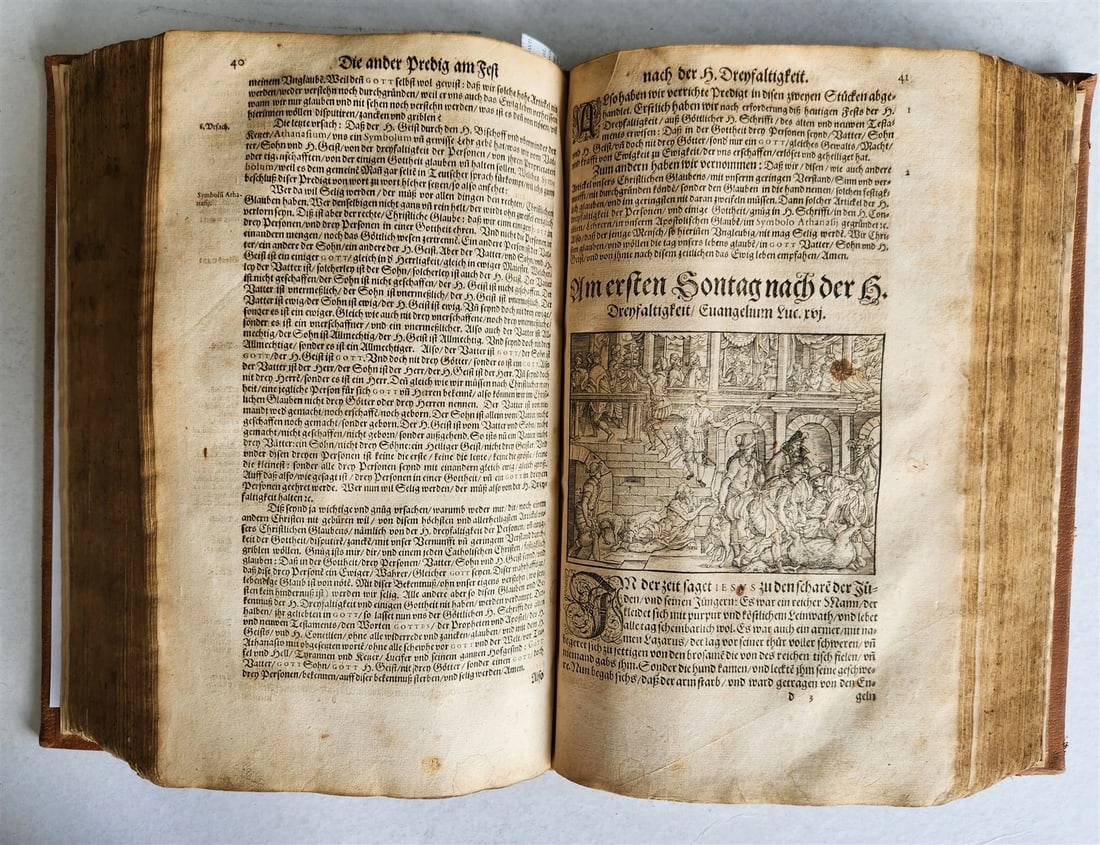 40
Die ander Predig am Fest
meinem Vnglaubē. Weil deñ GOTT selbst wol gewist: daß wir solche hohe Artickel nit
werden/weder verstehn noch durchgründen/weil er vns auch das Ewig leben verheissen
wann wir nur glauben vnd nit sehen noch verstehn werden/was ist es
hierinnen wöllen disputiren/zancken vnd griblen?
Die letzte vrsach: Daß der H. Geist durch den H. Bischoff vnd
Ketzer/Athanasium/vns ein Symbolum vñ gewisse Lehr gebē hat/was wir vom Vat-
ter/Sohn vnd H. Geist/von der dreyfaltigkeit der Personen/von jhren Proprietaten
oder eigenschafften/von der einigen Gottheit glauben vñ halten sollen.
bolum/weil es dem gemeinē Mañ gar seltē in Teutscher sprach fürkompt/
beschluß diser Predig von wort zu wort hieher setzen/so also anfahet:
Symbolū Atha-
nasij.
Wer da wil Selig werden/der müß vor allen dingen den rechten/Christlichen
Glauben haben. Wer denselbigen nicht gantz vñ rein helt/der wirdt ohn zweifel ewiglich
verlorn seyn. Diß ist aber der rechte/Christliche Glaube: daß wir ein einigen GOTT in
drey Personen/vnd drey Personen in einer Gottheit ehren. Vnd nicht die Personen in
einandern mengen/noch das Göttlich wesen zertrennē. Ein andere Person ist der Vat-
ter/ein andere der Sohn/ein andere der H. Geist. Aber der Vatter/vnd Sohn/vnd H.
Geist ist ein einiger GOTT/gleich in der Herrligkeit/gleich in ewiger Maiestet. Welcher-
ley der Vatter ist/solcherley ist der Sohn/solcherley ist auch der H. Geist. Der Vatter
ist nicht geschaffen/der Sohn ist nicht geschaffen/der H. Geist ist nicht geschaffen. Der
Vatter ist vnermeßlich/der Sohn ist vnermeßlich/der H. Geist ist vnermeßlich. Der
Vatter ist ewig/der Sohn ist ewig/der H. Geist ist ewig. Vñ seynd doch nit drey ewige/
sonder es ist ein ewiger. Gleich wie auch nit drey vnerschaffene/noch drey vnermeßliche/
sonder es ist ein vnerschaffner/vnd ein vnermeßlicher. Also auch der Vatter ist All-
mechtig/der Sohn ist Allmechtig/der H. Geist ist Allmechtig. Vnd seynd doch nit drey
Allmechtige/sonder es ist ein Allmechtiger. Also/der Vatter ist GOTT/der Sohn ist
GOTT/der H. Geist ist GOTT. Vnd doch nit drey Götter/sonder es ist ein GOTT. Also
der Vatter ist der Herr/der Sohn ist der Herr/der H. Geist ist der Herr. Vñ seynd doch
nit drey Herrē/sonder es ist ein Herr. Deñ gleich wie wir müssen nach Christlicher war-
heit/eine jegliche Person für sich GOTT vñ Herren bekennē/also können wir im Christ-
lichen Glauben nicht drey Götter oder drey Herren nennen. Der Vatter ist von nie-
mandt weder gemacht/noch erschaffē/noch geborn. Der Sohn ist allein vom Vatter/nicht
geschaffen noch gemacht/sonder geborn. Der H. Geist ist vom Vatter vnd Sohn/nicht
gemacht/nicht geschaffen/nicht geborn/sonder außgehend. So ists nů ein Vatter/nicht
drey Vätter: ein Sohn/nicht drey Söhne: ein Heiliger Geist/nicht drey Geister. Vnd
vnder disen dreyen Personen ist keine die erste/keine die letzte/keine die gröste/keine
die kleinest: sonder alle drey Personen seynd mit einandern gleich ewig/gleich groß:
Auff daß also/wie gesagt ist/drey Personen in einer Gottheit/vñ ein GOTT in dreyen
Personen geehret werde. Wer nun wil Selig werden/der müß also von der H. Drey-
faltigkeit halten ꝛc.
Diß seynd ja wichtige vnd gnüg vrsachen/warumb weder mir/dir/noch einem
andern Christen nit gebüren will/von disem höchsten vnd allerheiligsten Artickel vn-
sers Christlichen Glaubens/nämlich von der H. dreyfaltigkeit der Personen/
keit der Gottheit/disputirē/zanckē/mit vnser Vernunfft vñ geringem Verstand
griblen wöllen. Gnüg ists mir/dir/vnd einem jeden Catholischen Christen/
glauben: Daß in der Gottheit drey Personen/Vatter/Sohn vnd H. Geist seynd/
daß dise drey Personē ein Ewiger/Wahrer/Gleicher GOTT seyen. Diser
lebendige Glaub ist von nötē. Mit diser Bekennuß/ohn vnser eigens verstehn/
sten kein hinderniß ist) werden wir selig. Alle andere aber so disen Glauben vnd
kenntnuß der H. Dreyfaltigkeit vnd einigen Gottheit nit haben/werden verdampt.
halben/jhr geliebten in GOTT/so lasset nun vns der Göttlichen H. Schrifft des alten
vnd newen Testaments/den Worten GOTTES/der Propheten vnd Apostel/des H.
Geists/vnd H. Concilien/ohne alle widerrede vnd zancken/glauben/vnd mit dem H.
Athanasio mit obgesetzten wortē/ohne alle schewhe vor GOTT vnd der Welt/vor Teu-
fel vnd Hell/Tyrannen vnd Ketzer/Lucifer vnd seinem gantzen Hofgesind:
Vatter/GOTT Sohn/GOTT H. Geist/nit drey Götter/sonder einen GOTT/doch
drey Personen/bekennen/auff diser bekentnuß sterben/vnd selig werden/Amen.
Also
nach der H. Dreyfaltigkeit.
41
ALso haben wir verrichte Predig in disen zweyen Stücken abge-
handlet. Erstlich haben wir nach erforderung diß heutigen Fests der H.
Dreyfaltigkeit/auß Göttlicher H. Schrifft/des alten vnd newen Testa-
ments erwisen: Daß in der Gottheit drey Personen seynd/Vatter/Sohn
vnd H. Geist/vñ doch nit drey Götter/sond nur ein GOTT/gleiches Gewalts/Macht/
vnd krafft von Ewigkeit zu Ewigkeit/der vns erschaffen/erlöset vnd geheiliget hat.
Zum andern haben wir vernommen: Daß wir/disen/wie auch andere
Artickel vnsers Christlichen Glaubens/mit vnserm geringen Verstand/Sinn vnd ver-
nunfft/nit durchgründen köndē/sonder den Glauben in die hand nemen/solchen festigk-
lich/vnd im geringsten nit daran zweifeln müssen. Dann solcher Artickel der H.
Dreyfaltigkeit der Personen/vnd einige Gottheit/gnüg in H. Schrifft/in den H. Con-
cilien/Lehrern/in vnserm Apostolischen Glaubē/im Symbolo Athanasij gegründet ꝛc.
Also/daß der jenige Mensch/so hierīñen Vngleubig/nit mag Selig werdē. Wir Chri-
sten glauben/vnd wöllen die tag vnsers lebens glaubē/in GOTT Vatter/Sohn vnd H.
Geist/vnd von jhme nach disem zeitlichen das Ewig leben empfahen/Amen.
1
2
Am ersten Sontag nach der H.
Dreyfaltigkeit/Euangelium Luc. xvj.
IN der zeit saget IESVS zu den scharē der Jü-
den/vnd seinen Jüngern: Es war ein reicher Mann/der
kleidet sich mit purpur vnd köstlichem Leinwath/vnd lebet
alle tag scheinbarlich wol. Es war auch ein armer/mit na-
men Lazarus/der lag vor seiner thür voller schweren/vñ
begeret sich zu settigen von den brosamē die von des reichen tisch fielen/vñ
niemand gabs jhm. Sonder die hund kamen/vnd lecktē jhm seine geschwe-
re. Nun begab sichs/daß der arm starb/vnd ward getragen von den En-
d 3
geln